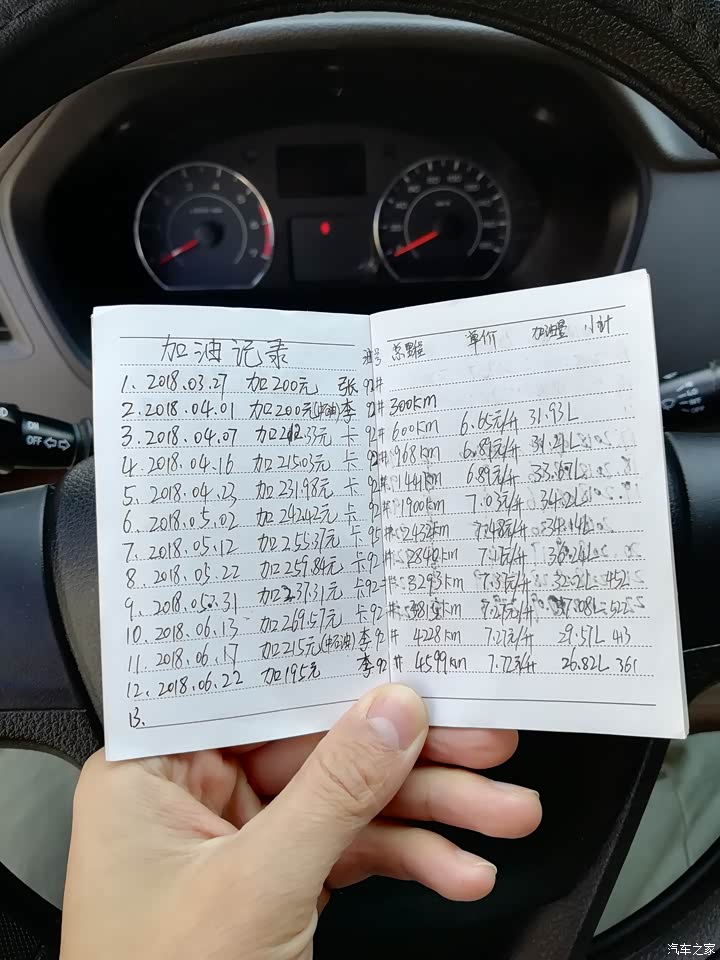 加油记录 油号 总里程 单价 加油量 小计
1. 2018.03.27 加200元 张 92#
2. 2018.04.01 加200元(中油) 李 92# 300km
3. 2018.04.07 加212.33元 卡 92# 600km 6.65元/升 31.93L
4. 2018.04.16 加215.03元 卡 92# 968km 6.89元/升 31.21L
5. 2018.04.23 加231.98元 卡 92# 1441km 6.89元/升 33.67L
6. 2018.05.02 加242.42元 卡 92# 1900km 7.03元/升 34.2L
7. 2018.05.12 加255.37元 卡 95# 2432km 7.48元/升 34.14L
8. 2018.05.22 加259.84元 卡 92# 2840km
9. 2018.05.31 加237.31元 卡 92# 3293km 7.37元/升 32.2L 452
10. 2018.06.13 加269.57元 卡 92# 3815km 7.27元/升 37.08L 522
11. 2018.06.17 加215元(中石油) 李 92# 4228km 7.27元/升 29.57L 413
12. 2018.06.22 加195元 李 92# 4599km 7.27元/升 26.82L 361
13.
ON
OFF
汽车之家